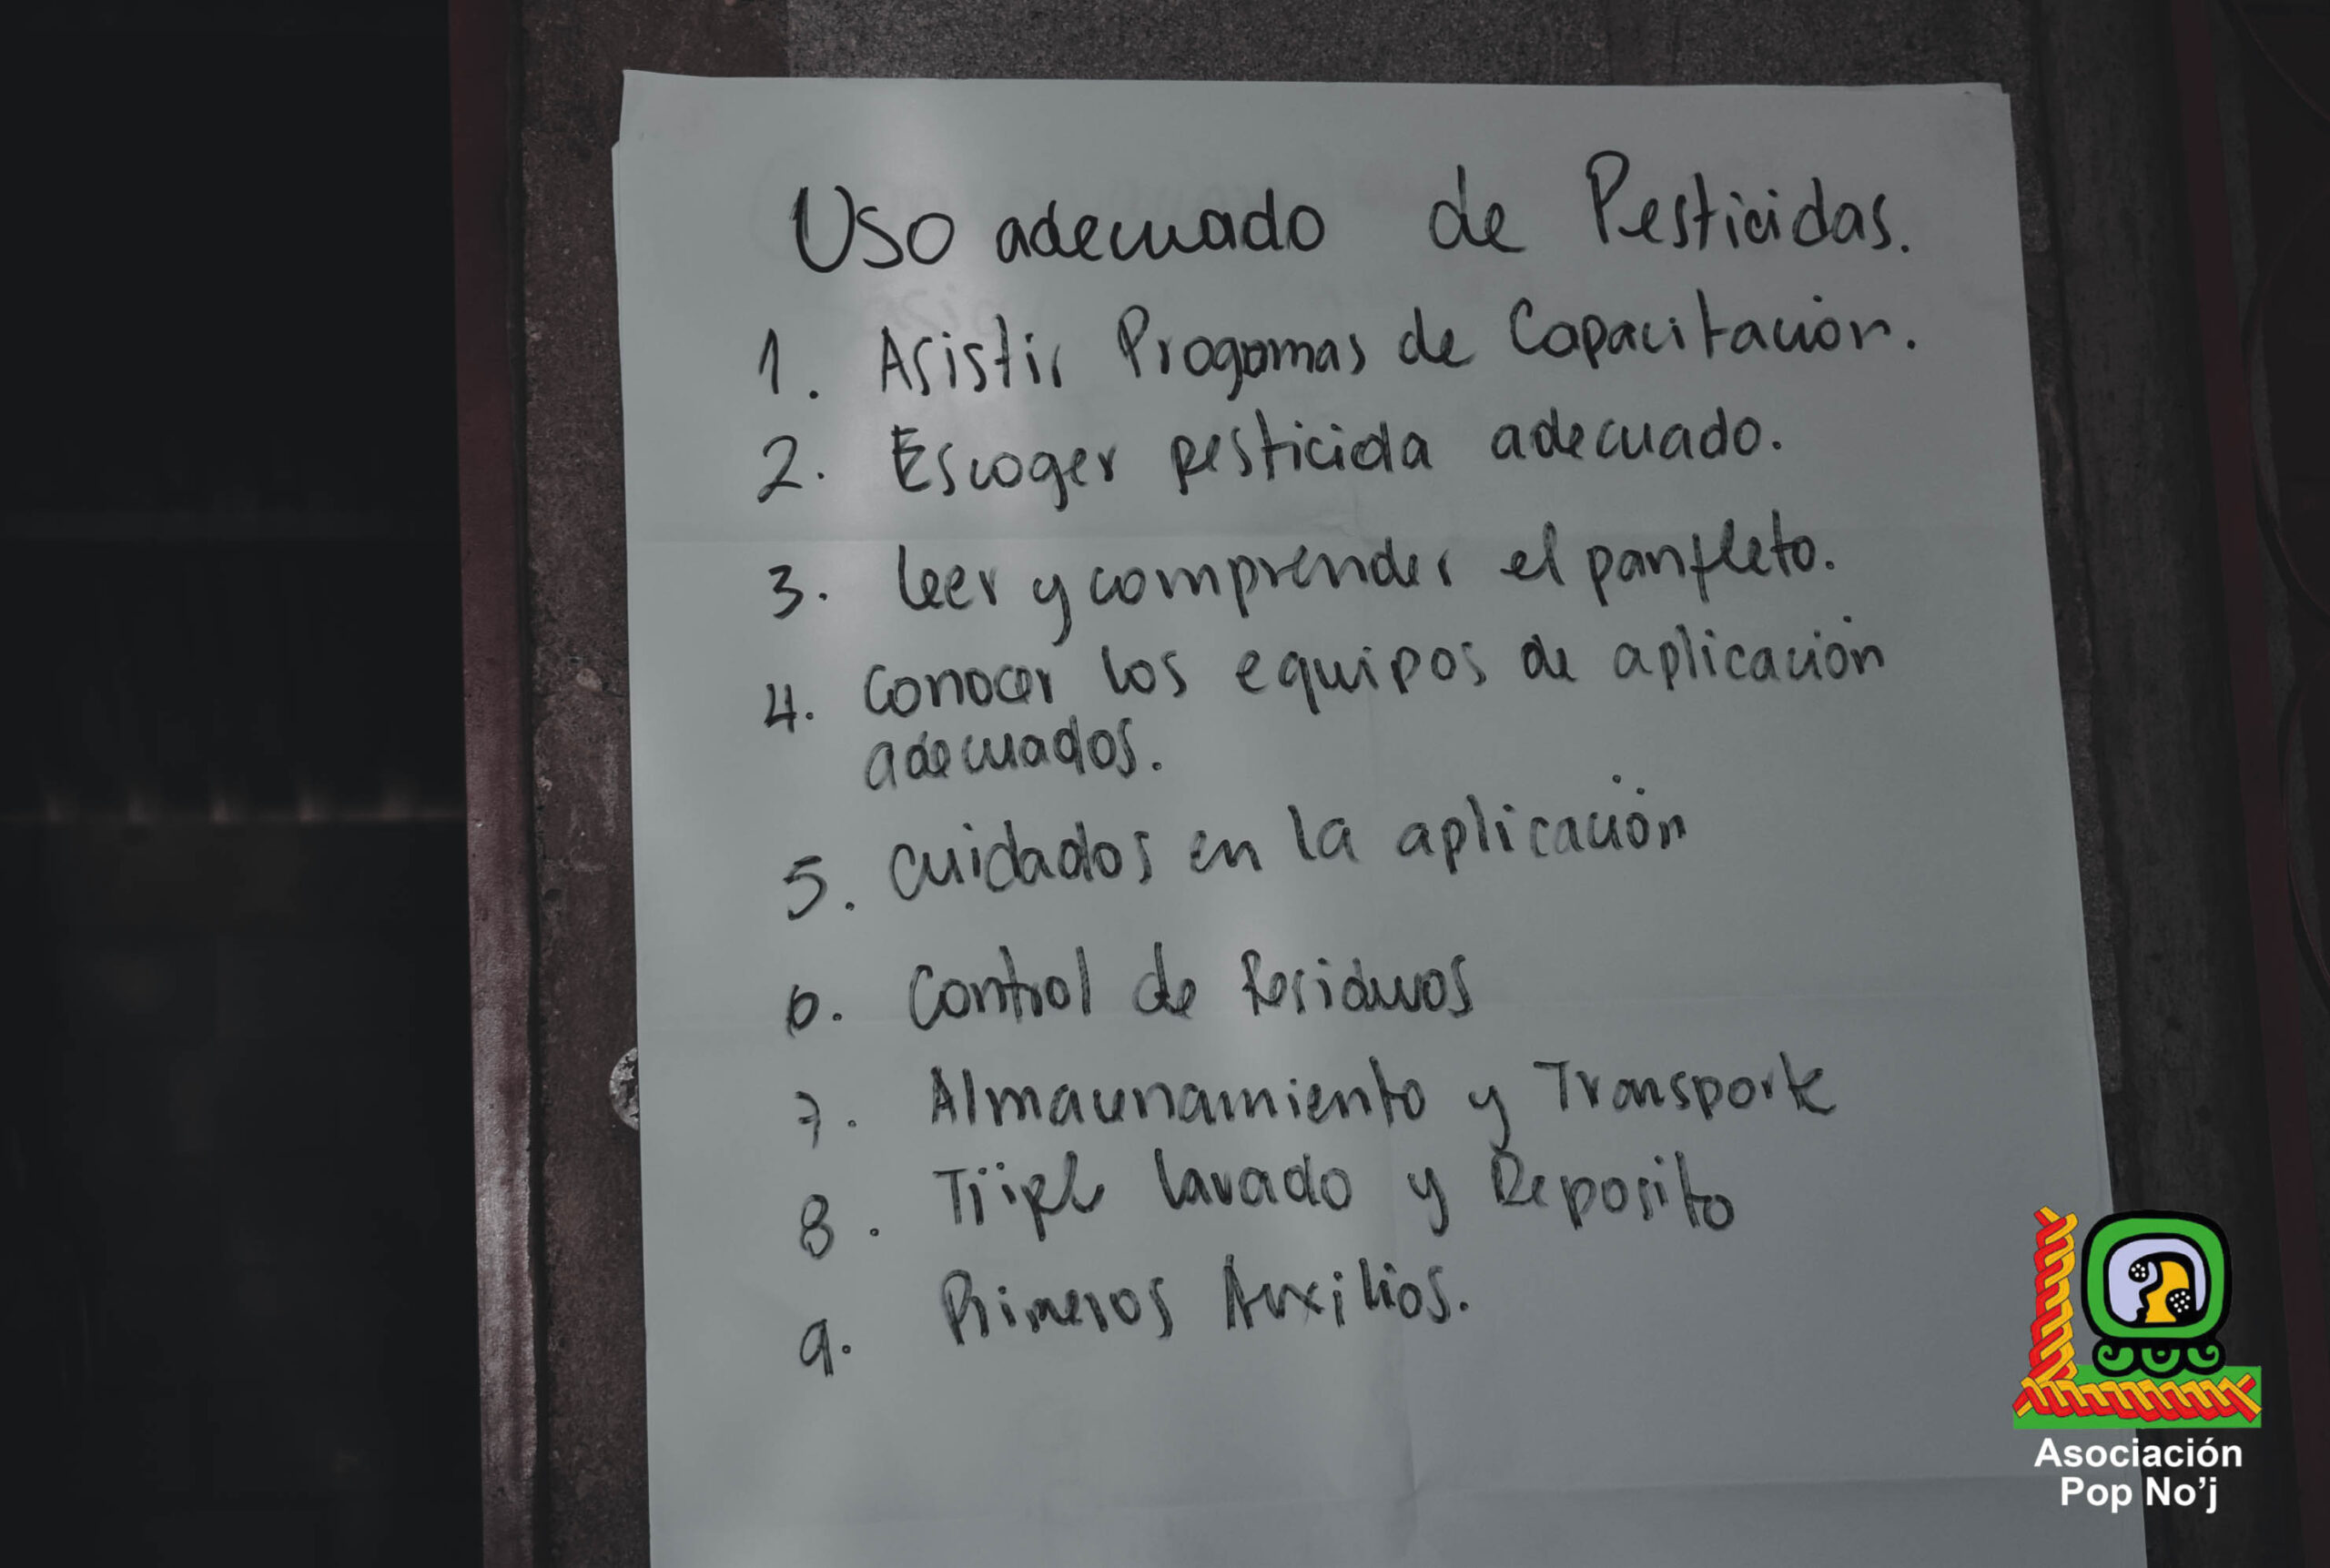 Uso adecuado de Pesticidas.
1. Asistir Progamas de Capacitación.
2. Escoger pesticida adecuado.
3. leer y comprender el panfleto.
4. Conocer los equipos de aplicación
adecuados.
5. cuidados en la aplicación
6. Control de Residuos
7. Almacenamiento y Transporte
8. Triple lavado y Deposito
9. Primeros Auxilios.
Asociación
Pop No'j